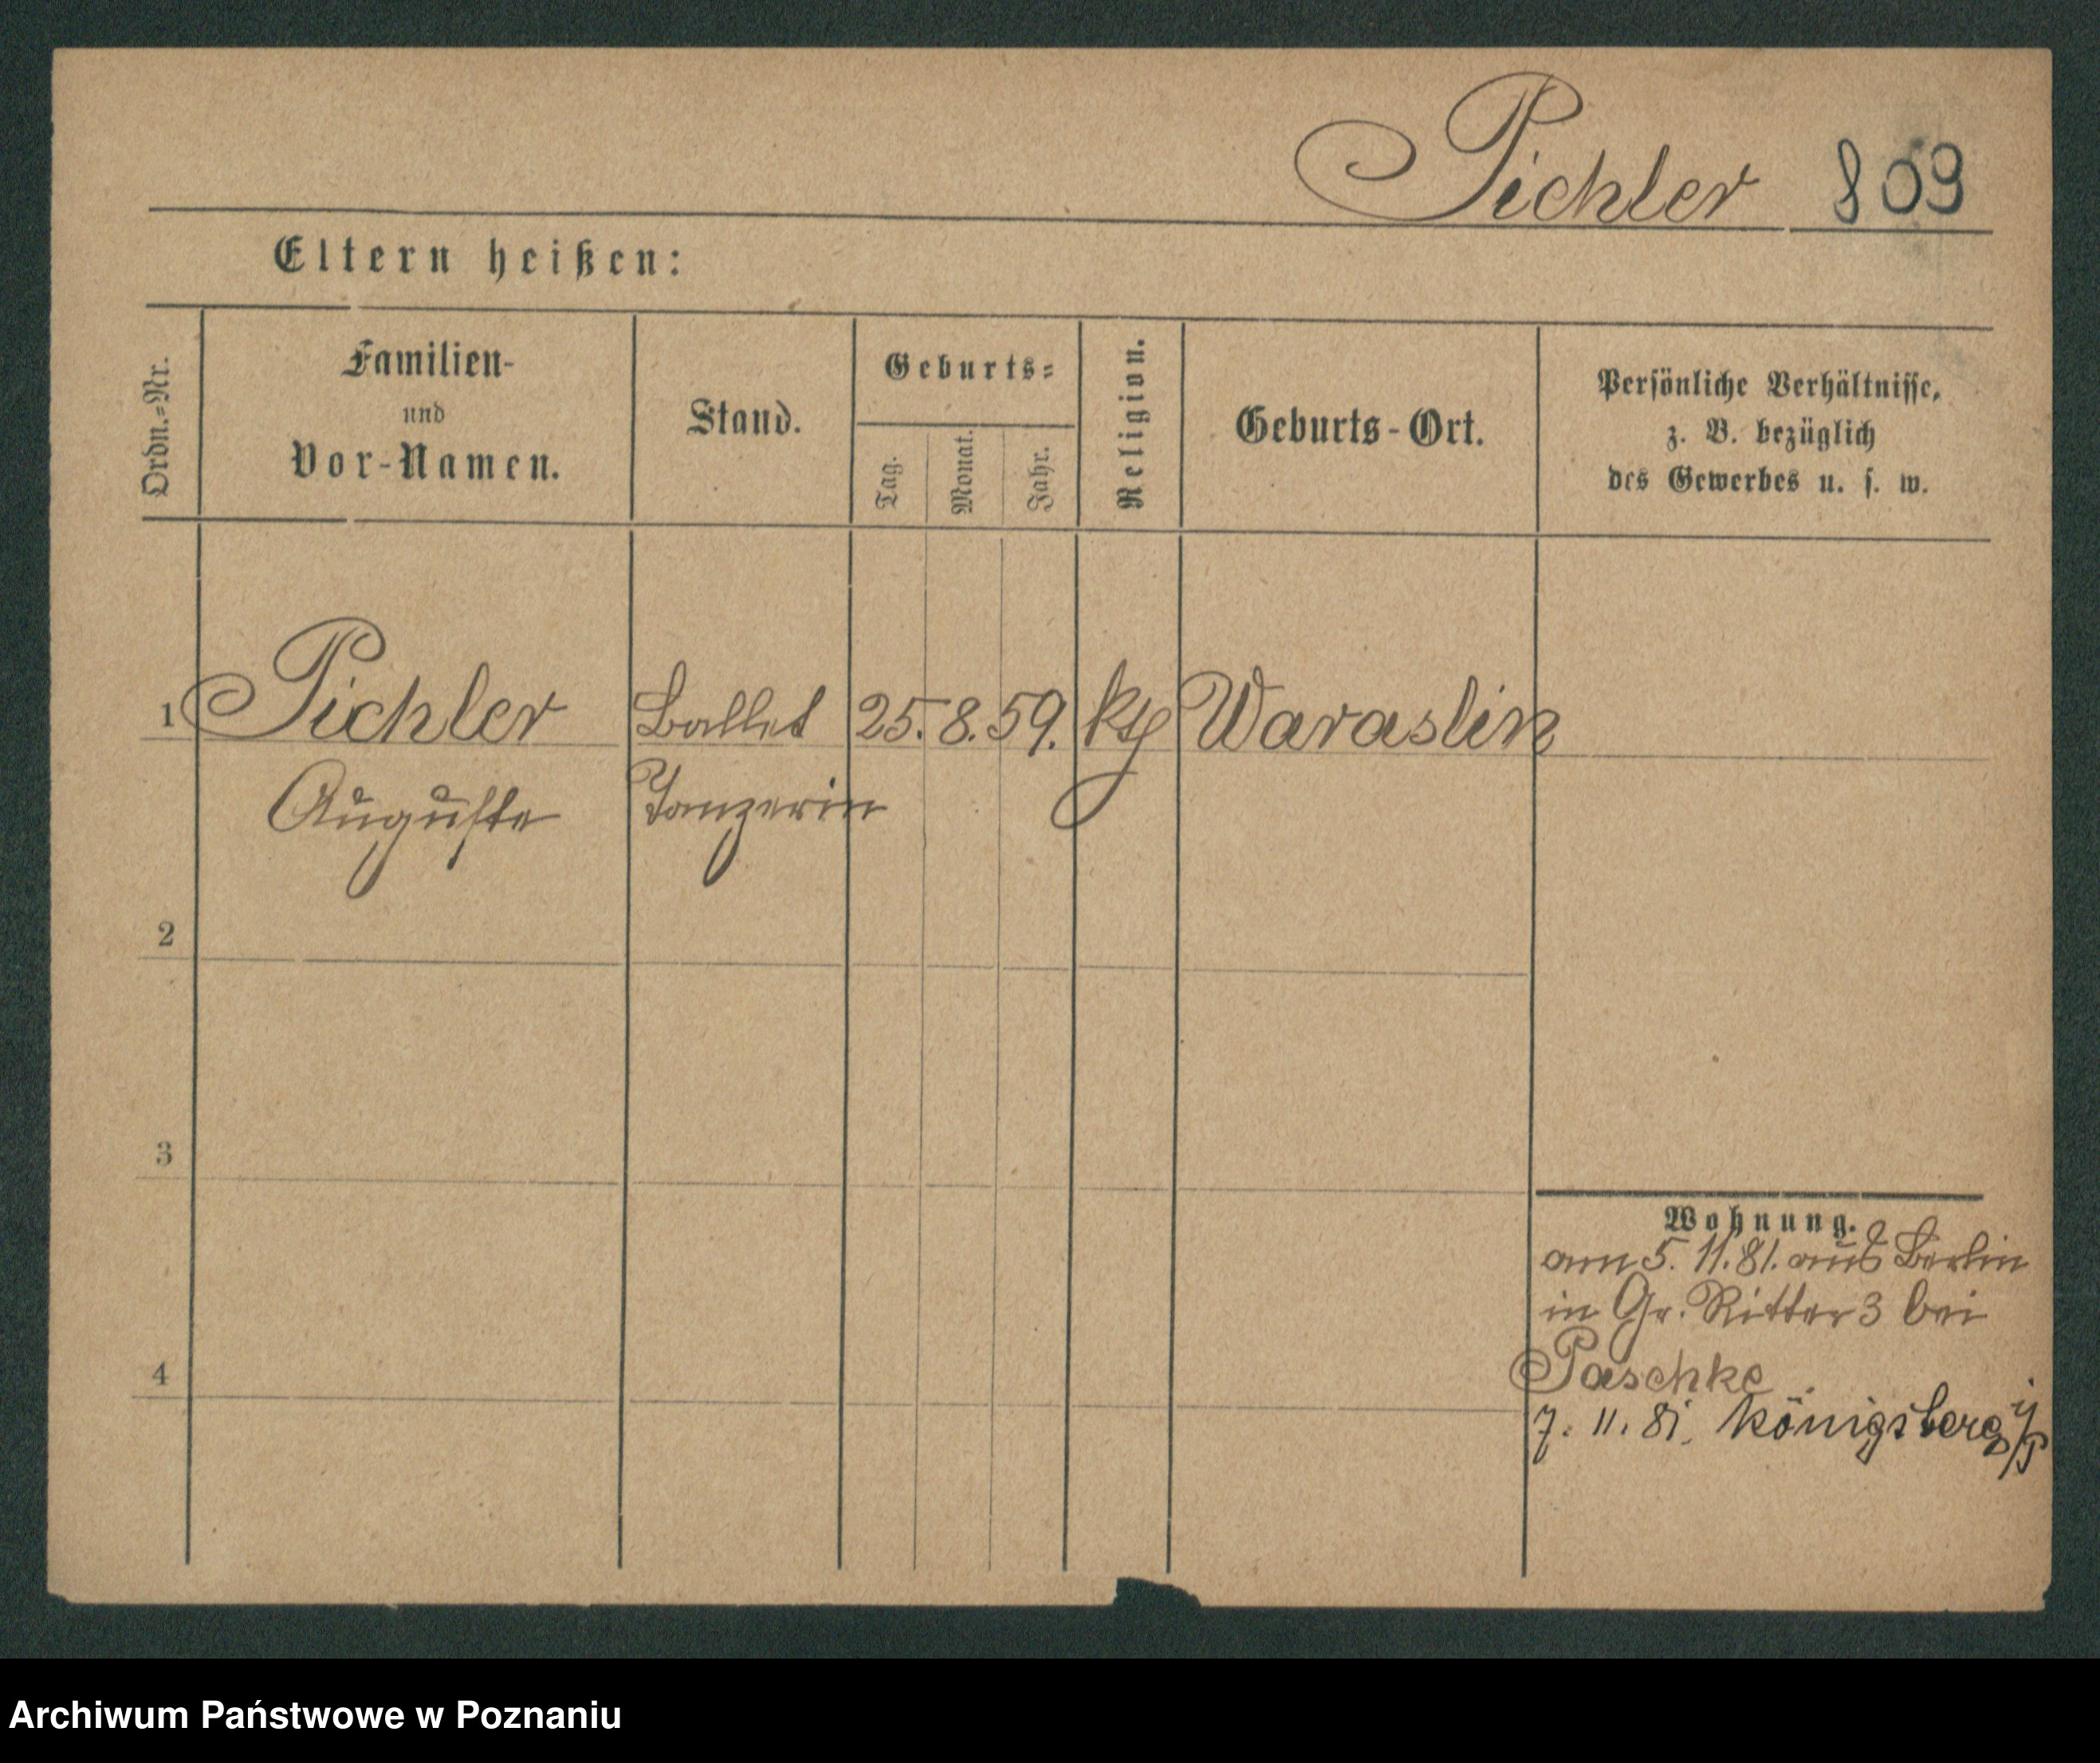 Pichler 809
Eltern heißen:
Ordn.=Nr.
Familien-
und
Vor-Namen.
Stand.
Geburts=
Tag.
Monat.
Jahr.
Religion.
Geburts-Ort.
Persönliche Verhältnisse,
z. B. bezüglich
des Gewerbes u. s. w.
1 Pichler Ballet 25. 8. 59. kth Waraslin
Auguste Tanzerin
2
3
4
Wohnung.
am 5. 11. 81. aus Berlin
in Gr. Ritter 3 bei
Paschke
7. 11. 81. Königsberg i/P
Archiwum Państwowe w Poznaniu